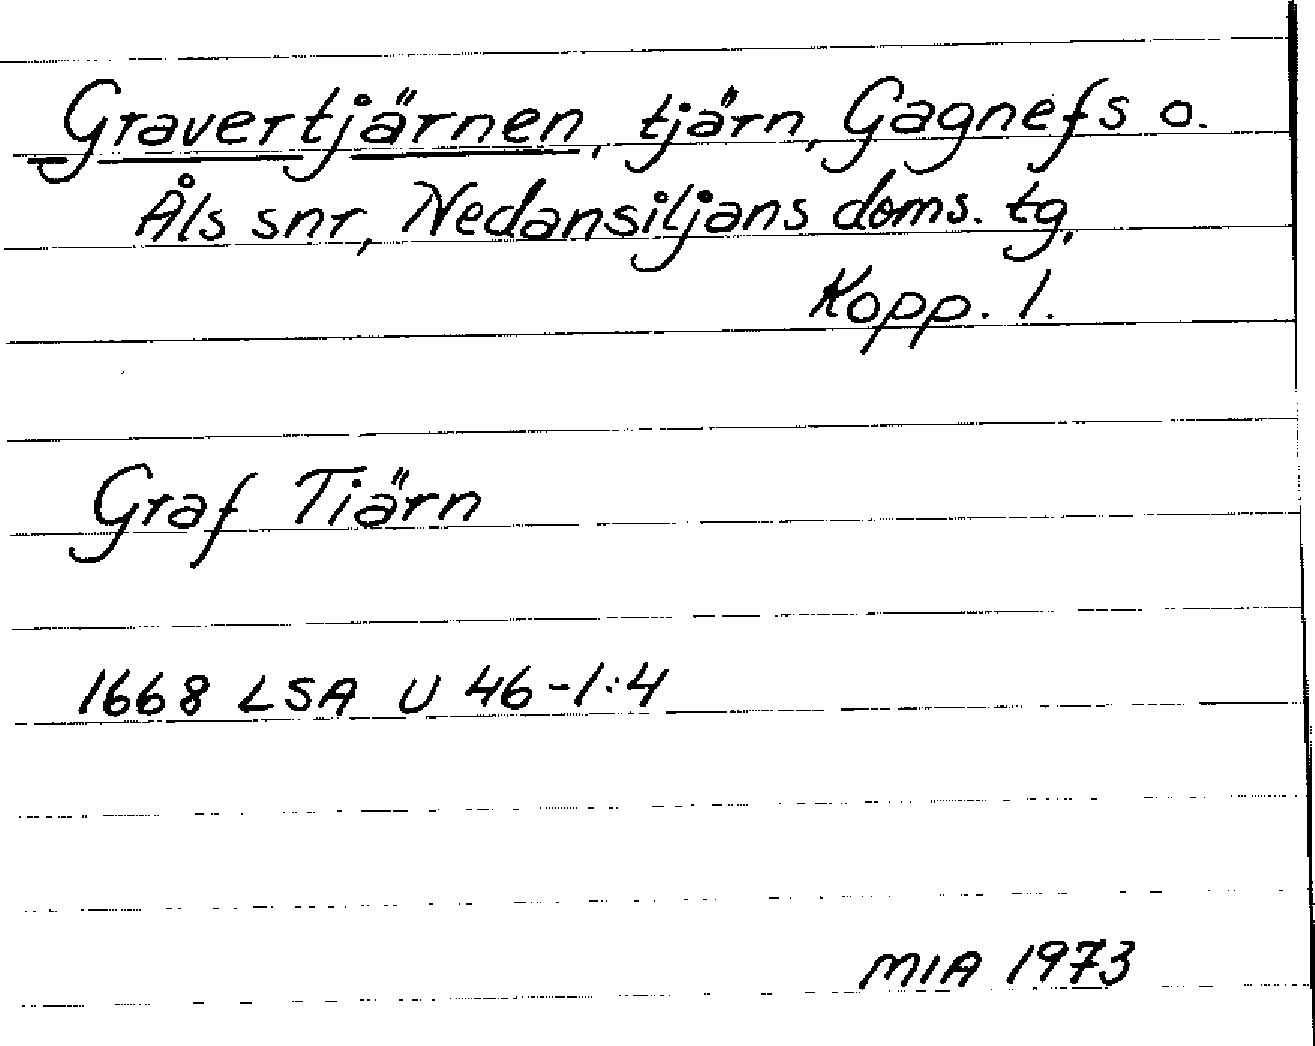 Gravertjärnen, tjärn, Gagnefs o.
Åls snr, Nedansiljans doms. tg.
Kopp. l.
Graf Tiärn
1668 LSA U 46-1:4
MIA 1973